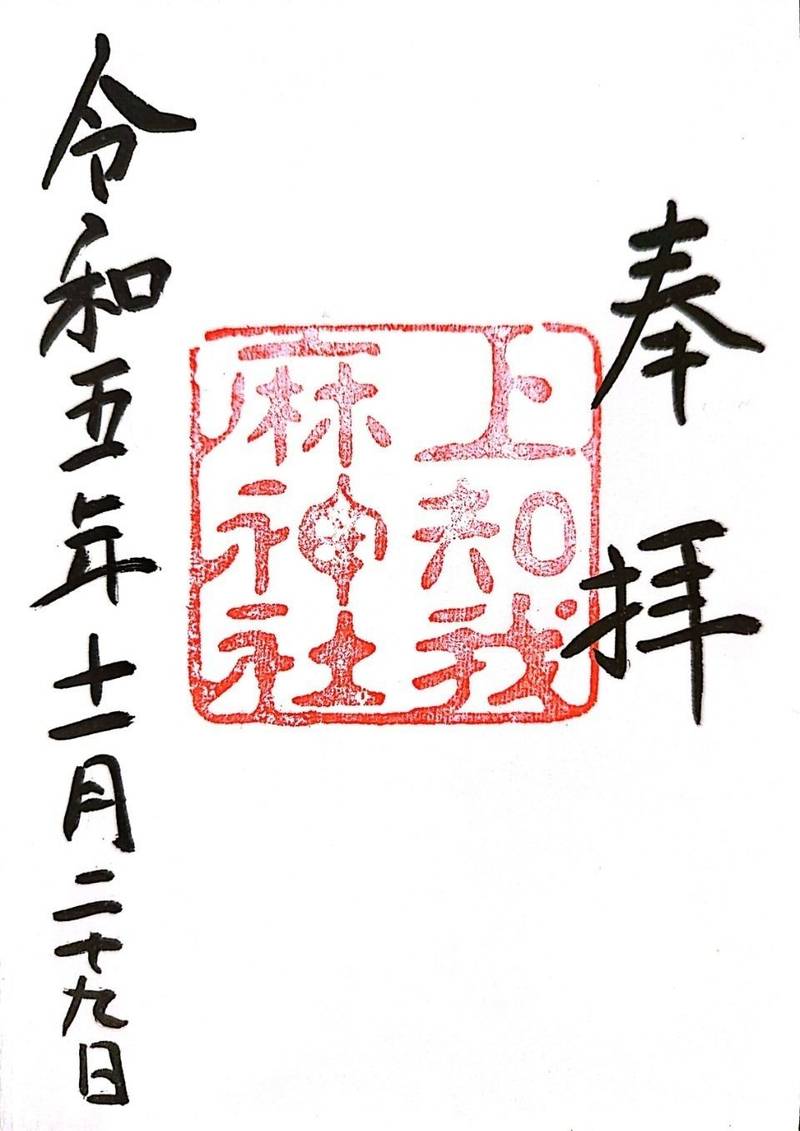 奉拝
上知我
麻神社
令和五年十一月二十九日